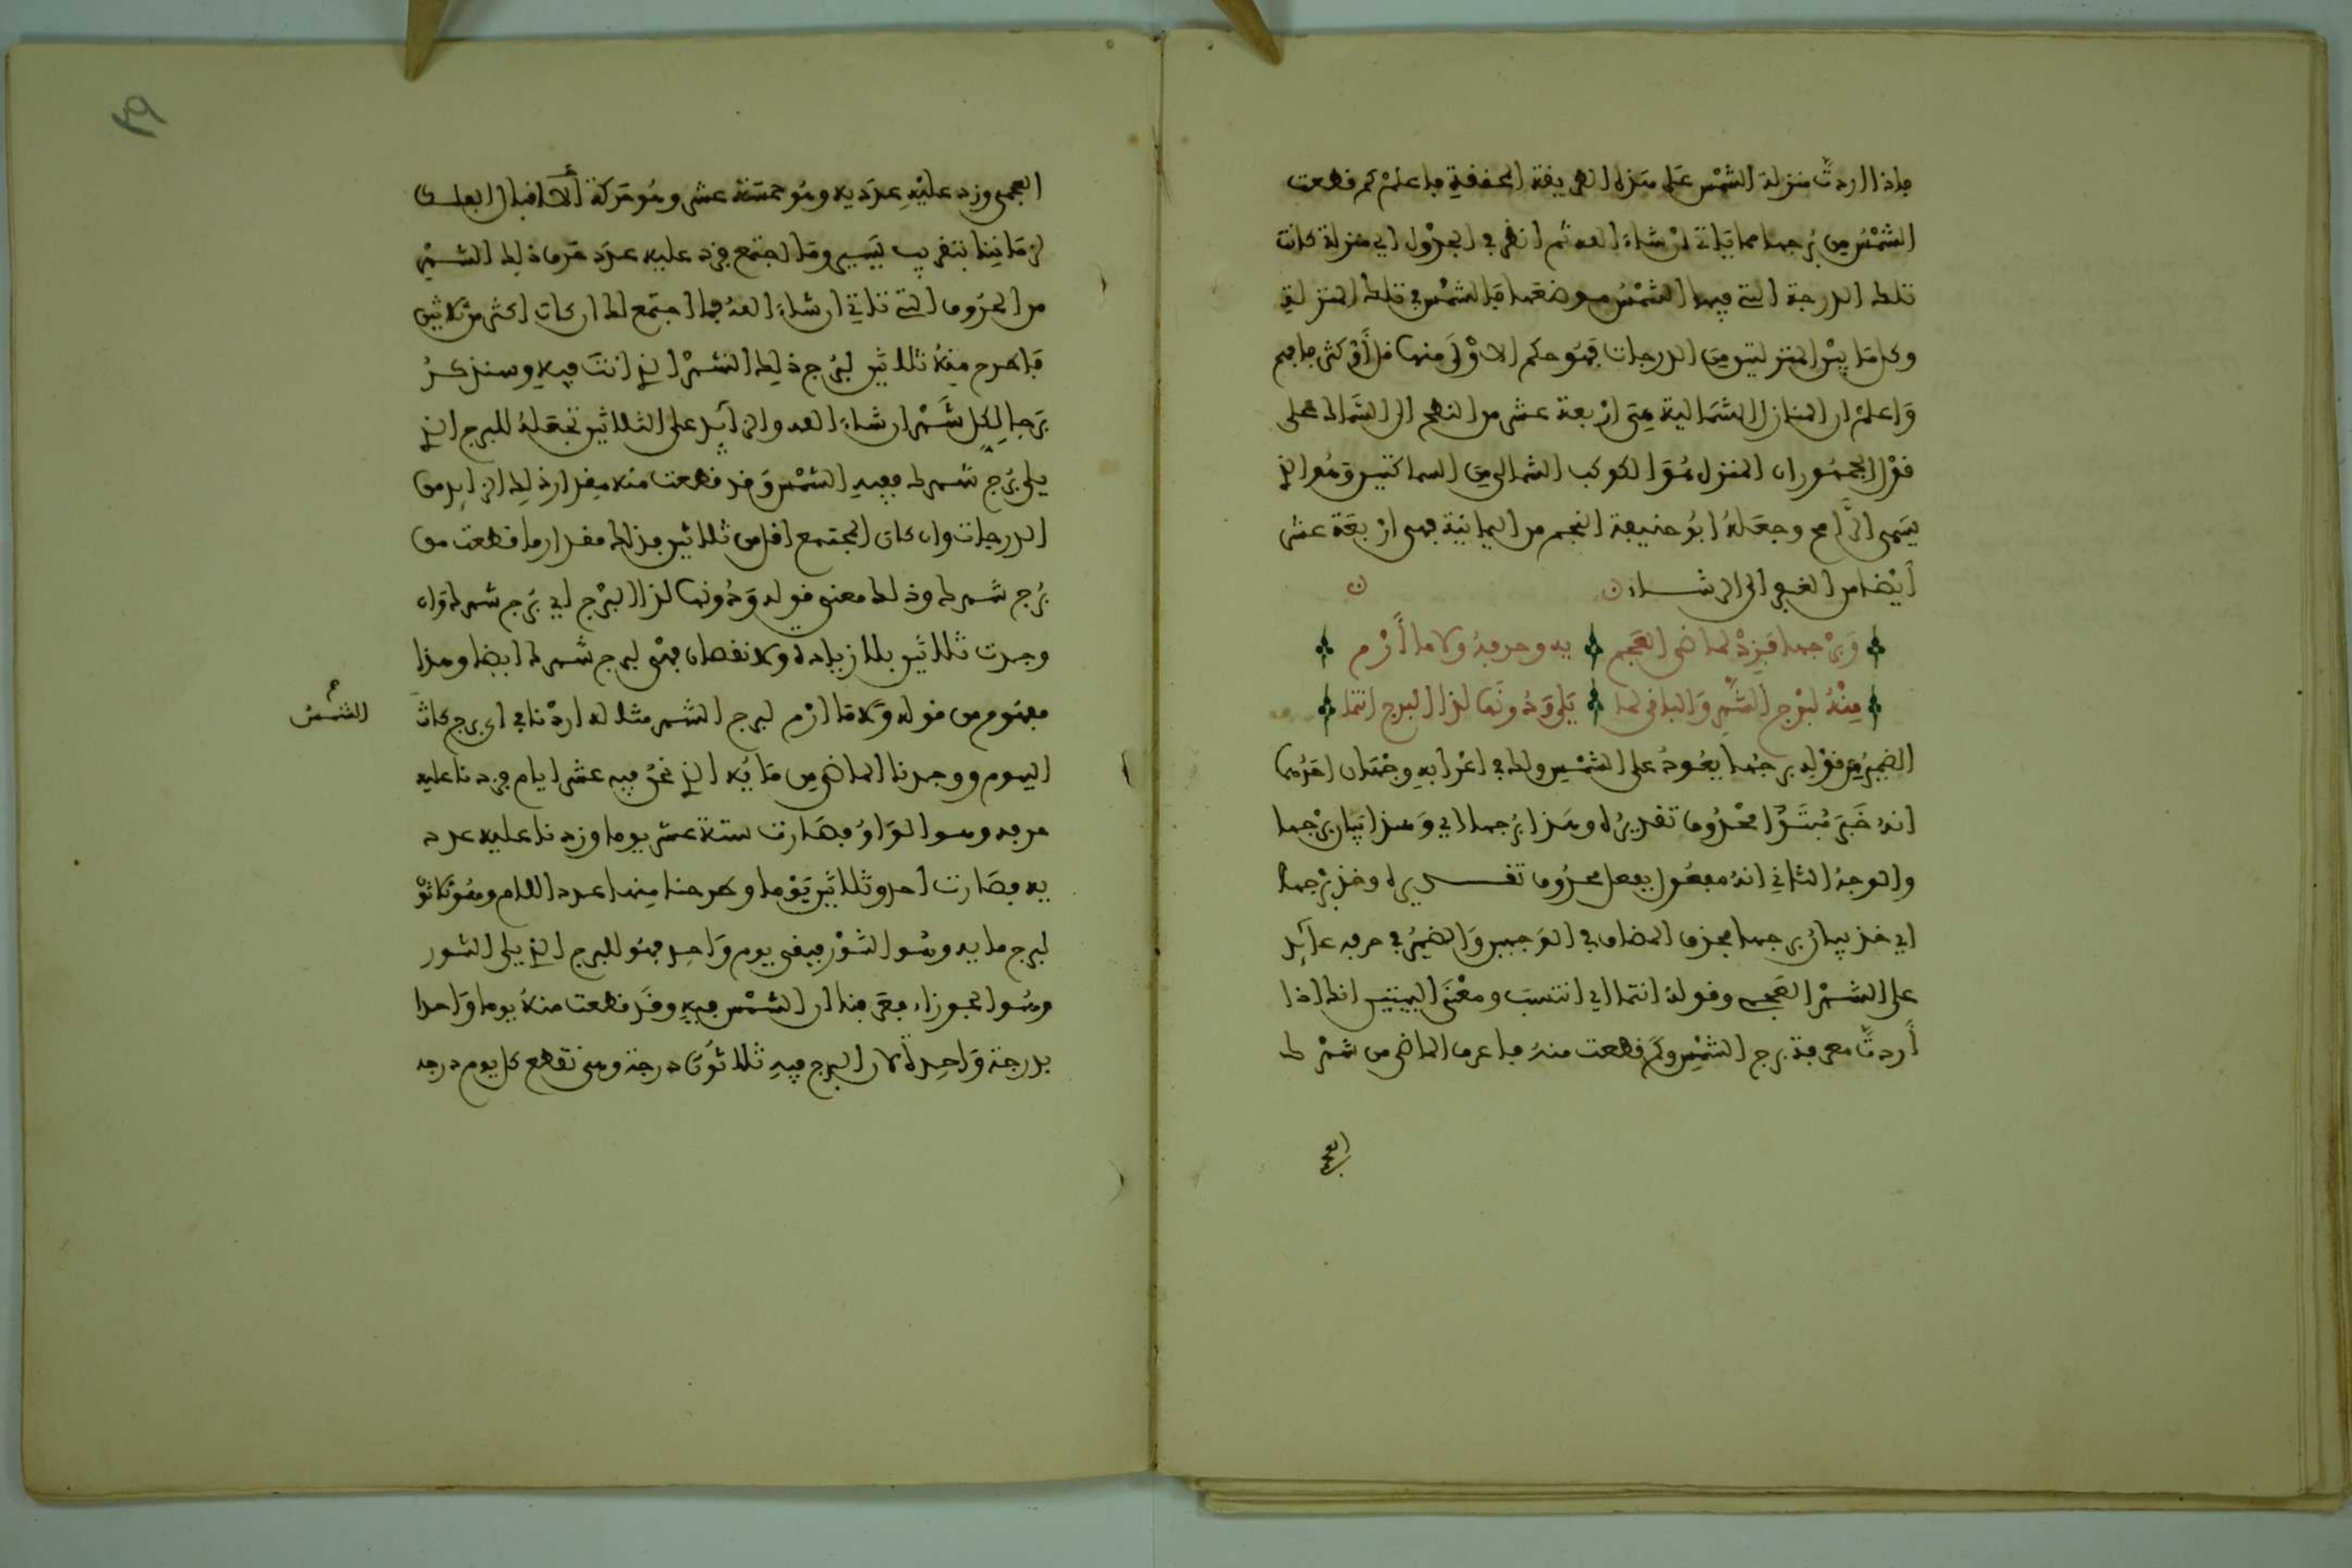 فإذا اردتَّ منزلة الشمْس على هذه الطريفة المحففة فاعلمْ كم فطعت
الشمْسُ من بُرجها مما ياتي ان شاء الله ثم انظر في الجدْول اي منزلة كانت
تلك الدرجة التي فيها الشمْسُ موضعها فالشمْس في تلك المنزلة
وكل ما بيْن المنزلتين من الدرجات فهُو حكم الاوْلى منها فل أوْ كثر فافهم
وَاعلمْ ان المنازل الشمالية هي ارْبعة عشر من النطح الى السماك على
فوْل الجمهُور ان المنزل هُوَ الكوكب الشمالي من السماكين وهُو الذ
يسَمى الرَّامح وجعَلهُ ابُو حنيفة النجم من اليمانية فهى ارْبعَة عشر
أيْضا من الغفر الى الرشاء
وَبرْجها فزِدْ لماضي العَجم يه وحرفهُ ولا ما أرْم
منْهُ لبرْج الشهْر وَالبافى لما يَلى وَدُونَها لذا البرج انتما
الضميرُ من فوْله برجُها يعُودُ على الشمْس وله في اعْرابه وجْهان احدُهما
انهُ خَبَرَ مُبتَدَإ محْذُوف تفديرُه وهذا بُرجها اي وَهذا بيان برْجها
والوجهُ الثاني انهُ مفعُول بفعل محذُوف تفديره وخذ برْجها
اي خذ بيانُ برجها فحذف المضاف في الوَجهين وَالضميرُ في حرفه عآئد
على الشهْر العَجمى وفولهُ انتما اي انتسبَ ومعْنَى البيتيْن انك اذا
أردتَّ معرفة برج الشمْس وكَم فطعت منهُ فاعرف الماضي من شهْرك
العجمى
العجمى وزد عليْه عدَد يه وهُو خمسَة عشر وهُو حَركة الافبال الفلكى
لزمَاننا بتفريب يَسِير ومَا اجتمع فزد عليه عدَد حَرف ذلك الشهْر
من الحرُوف التي تاتي ان شاء الله فما اجتمع لك ان كان اكثر من ثلاثين
فاطرح منهُ ثلاثين لبُرج ذلك الشهْر الذ انتَ فيه وسنذكرُ
بَرجا لكل شَهْر ان شاء الله والزآيد على الثلاثين تجعَلهُ للبرج الذ
يلى بُرْج شهرك ففيه الشمْس وَفد فطعت منه مفدار ذلك الزايد من
الدرجات وان كان المجتمع افل من ثلاثين فذلك مفدار ما فطعت من
بُرج شهرك وذلك معنى فوله وَدُونها لذا البرْج اي بُرج شهرك وَان
وجدت ثلاثين بلا زيادة ولا نفصان فهْى لبرج شهرك ايضا وهذا
مفهُوم من فوله وَلامَا ارْم لبرج الشهر مثاله اردْنا في اى برج كانت
الشمْسُ
اليوم ووجدنا الماضي من مَايُه الذ نحنُ فيه عشر ايام فزدنا عليه
حرفه وهو الوَاوُ فصَارت ستة عشر يوما وزدنا عليه عدد
يه فصَارت احد وثلاثين يَوْما وطرحنا منها عدد اللام وهُو ثلاثون
لبرج مايه وهُو الثوْر فبفى يوم وَاحد فهُو للبرج الذ يلى الثور
وهُو الجوزاء فعَرفنا ان الشمْس فيه وفَد فطعت منهُ يوما وَاحدا
بدرجة وَاحدة لان البرج فيه ثلاثُون درجة وهى تفطع كل يوم درجة